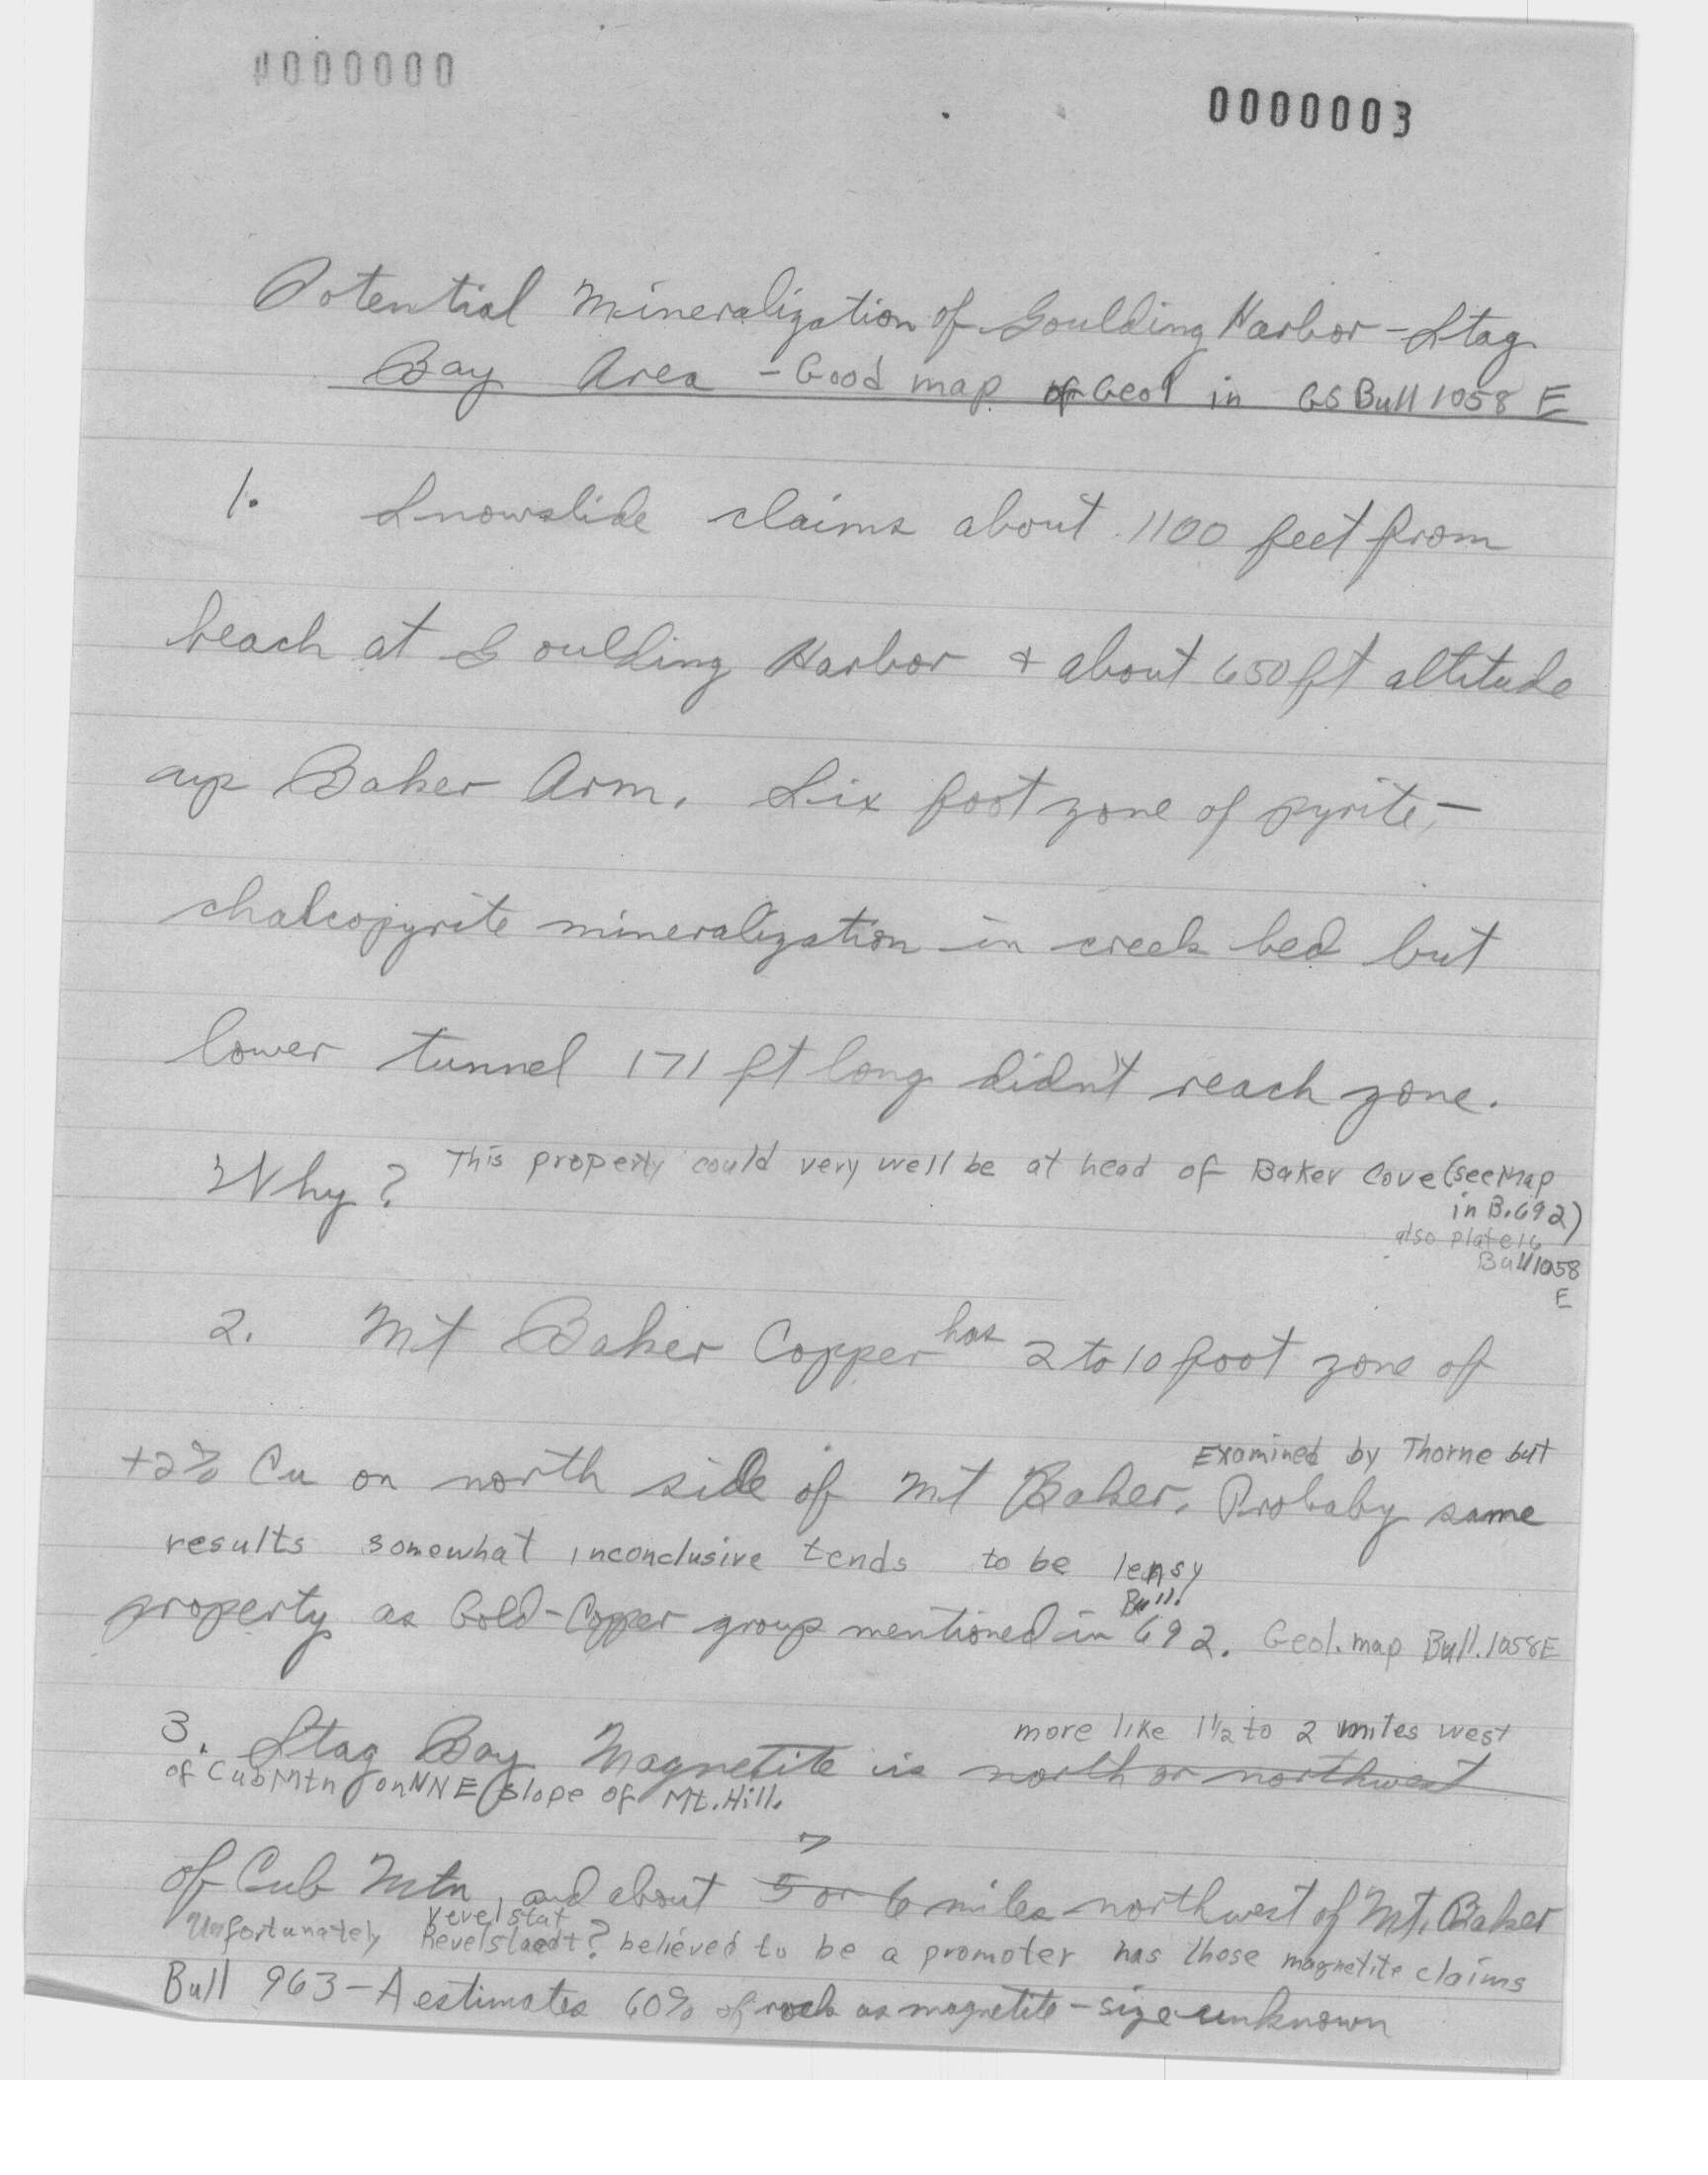 0000000
0000003
Potential Mineralization of Goulding Harbor - Stag
Bay Area - Good map of Geol in GS Bull 1058 E
1. Snowslide claims about 1100 feet from
beach at Goulding Harbor + about 650 ft altitude
up Baker Arm. Six foot zone of pyrite, -
chalcopyrite mineralization in creek bed but
lower tunnel 171 ft long didn't reach zone.
Why? This property could very well be at head of Baker Cove (see Map
in B.692)
also plate 16
Bull 1058
E
2. Mt Baker Copper has 2 to 10 foot zone of
Examined by Thorne but
+2% Cu on north side of Mt Baker. Probaby same
results somewhat inconclusive tends to be lensy
property as Gold-Copper group mentioned in Bull. 692. Geol. map Bull. 1058E
more like 1 1/2 to 2 miles west
3. Stag Bay Magnetite is north or northwest
of Cub Mtn on NNE slope of Mt. Hill.
7
of Cub Mtn, and about 5 or 6 miles northwest of Mt. Baker
Unfortunately ? believed to be a promoter has those magnetite claims
Bull 963-A estimates 60% of rock as magnetite - size unknown